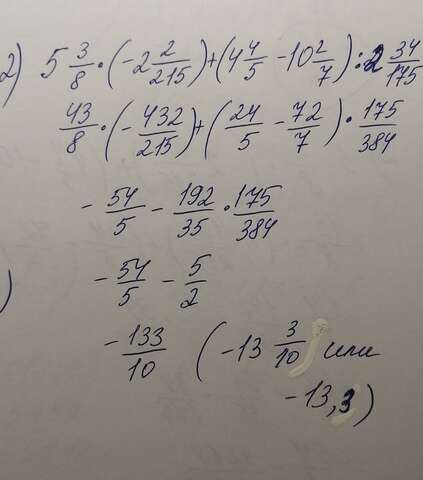 2) 5 3/8 · (-2 2/215) + (4 4/5 - 10 2/7) : 2 34/175
43/8 · (-432/215) + (24/5 - 72/7) · 175/384
- 54/5 - 192/35 · 175/384
- 54/5 - 5/2
)
- 133/10 (-13 3/10 или
-13,3)